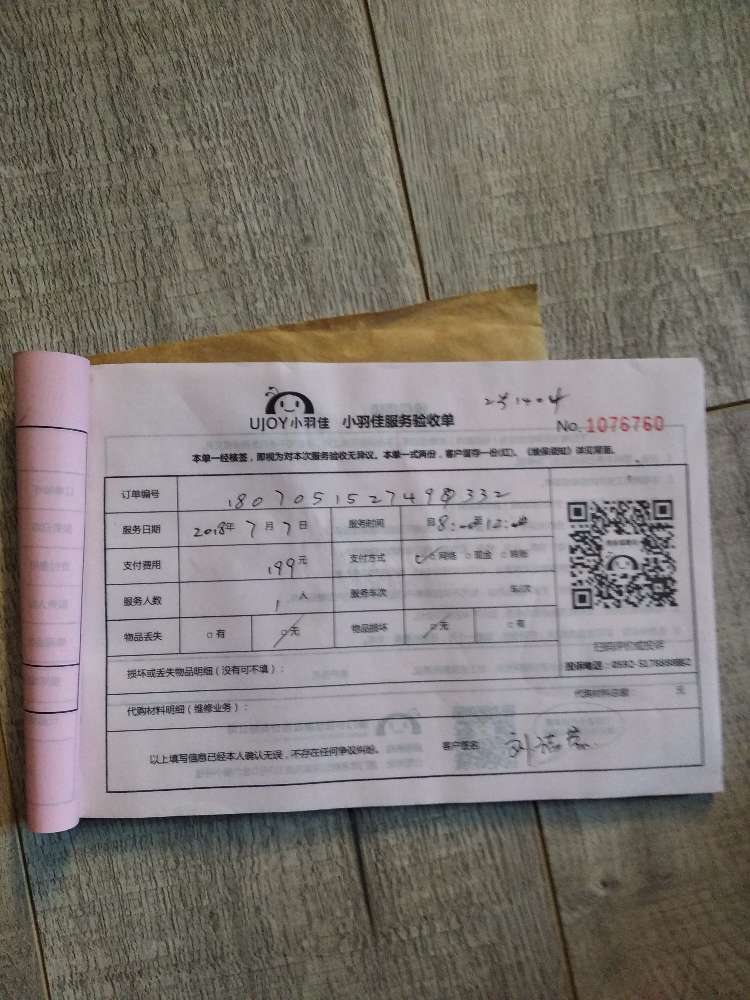 2号1404
UJOY小羽佳 小羽佳服务验收单 No. 1076760
本单一经核签，即视为对本次服务验收无异议。本单一式两份，客户留存一份(红)。《维保须知》详见背面。
订单编号
服务日期 2018年7月7日 服务时间 8:00至12:00
支付费用 199元 支付方式 网络 □现金 □转账
服务人数 1人 服务车次 车/次
物品丢失 □有 □无 物品损坏 □无 □有
扫码评价或投诉
损坏或丢失物品明细（没有可不填）：
代购材料明细（维修业务）： 代购材料总额： 元
以上填写信息已经本人确认无误，不存在任何争议纠纷。 客户签名: